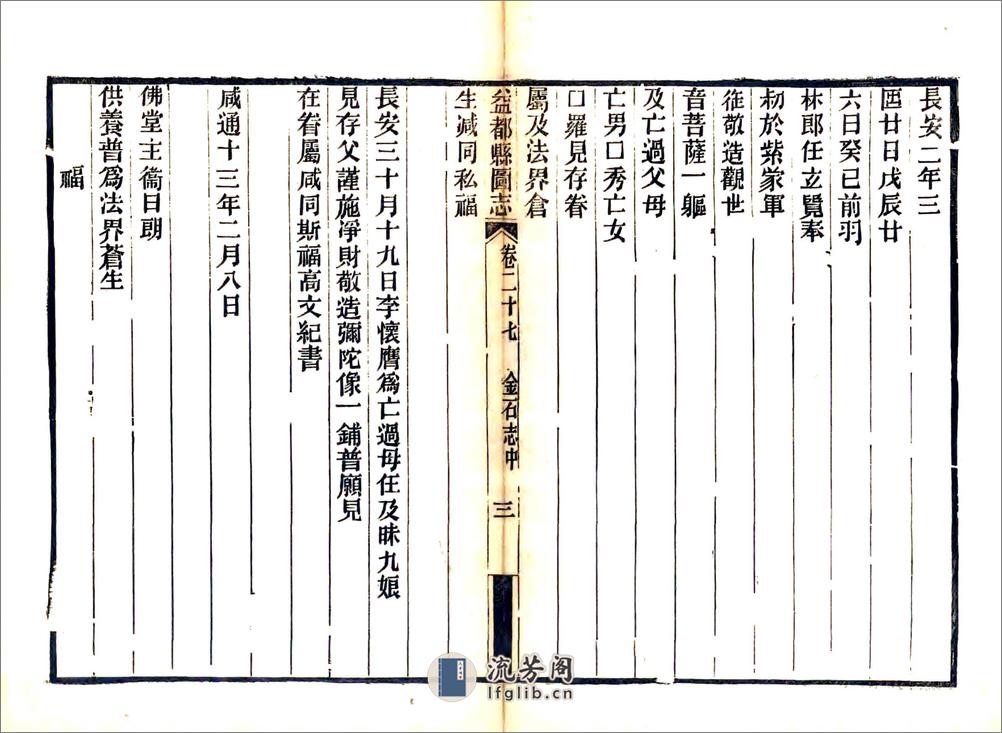 長安二年三
囸廿日戊辰廿
六日癸巳前羽
林郎任玄覽奉
勑於紫家軍
㢟敬造觀世
音菩薩一軀
及亡過父母
亡男口秀亡女
口羅見存眷
屬及法界倉
生減同私福
益都縣圖志 卷二十七 金石志中 三
長安三十月十九日李懷膺爲亡過母任及昧九娘
見存父謹施淨財敬造彌陀像一鋪普願見
在眷屬咸同斯福高文紀書
咸通十三年二月八日
佛堂主衞日朗
供養普爲法界蒼生
福
流芳阁
lfglib.cn